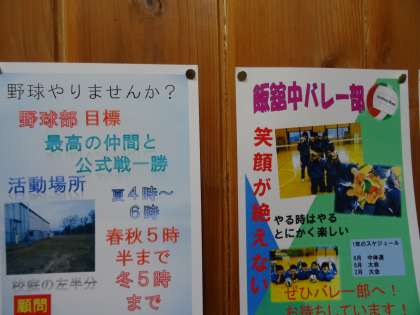 野球やりませんか？
野球部 目標
最高の仲間と
公式戦一勝
活動場所
校庭の左半分
顧問
夏4時～
6時
春秋5時
半まで
冬5時
まで
飯舘中バレー部
笑顔が絶えない
やる時はやる
とにかく楽しい
1年のスケジュール
6月 中体連
9月 大会
2月 大会
ぜひバレー部へ！
お待ちしています！